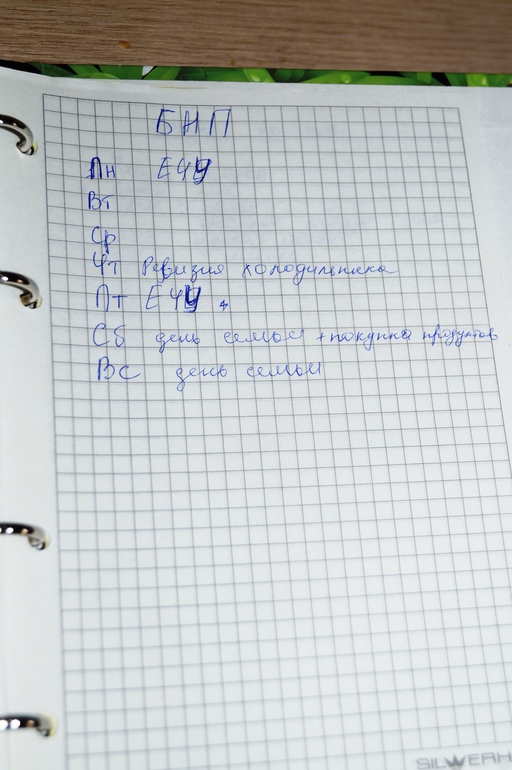 БНП
Пн ЕЧУ
Вт
Ср
Чт Ревизия холодильника
Пт ЕЧУ
Сб день семьи + покупка продуктов
Вс день семьи
SILWERH